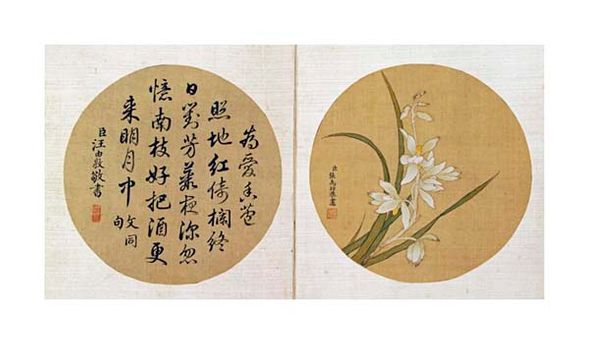 為愛香苞
照地紅倚欄終
日對芳叢夜深忽
憶南枝好把酒更
來明月中 文同
句
臣汪由敦敬書
臣張為邦恭畫